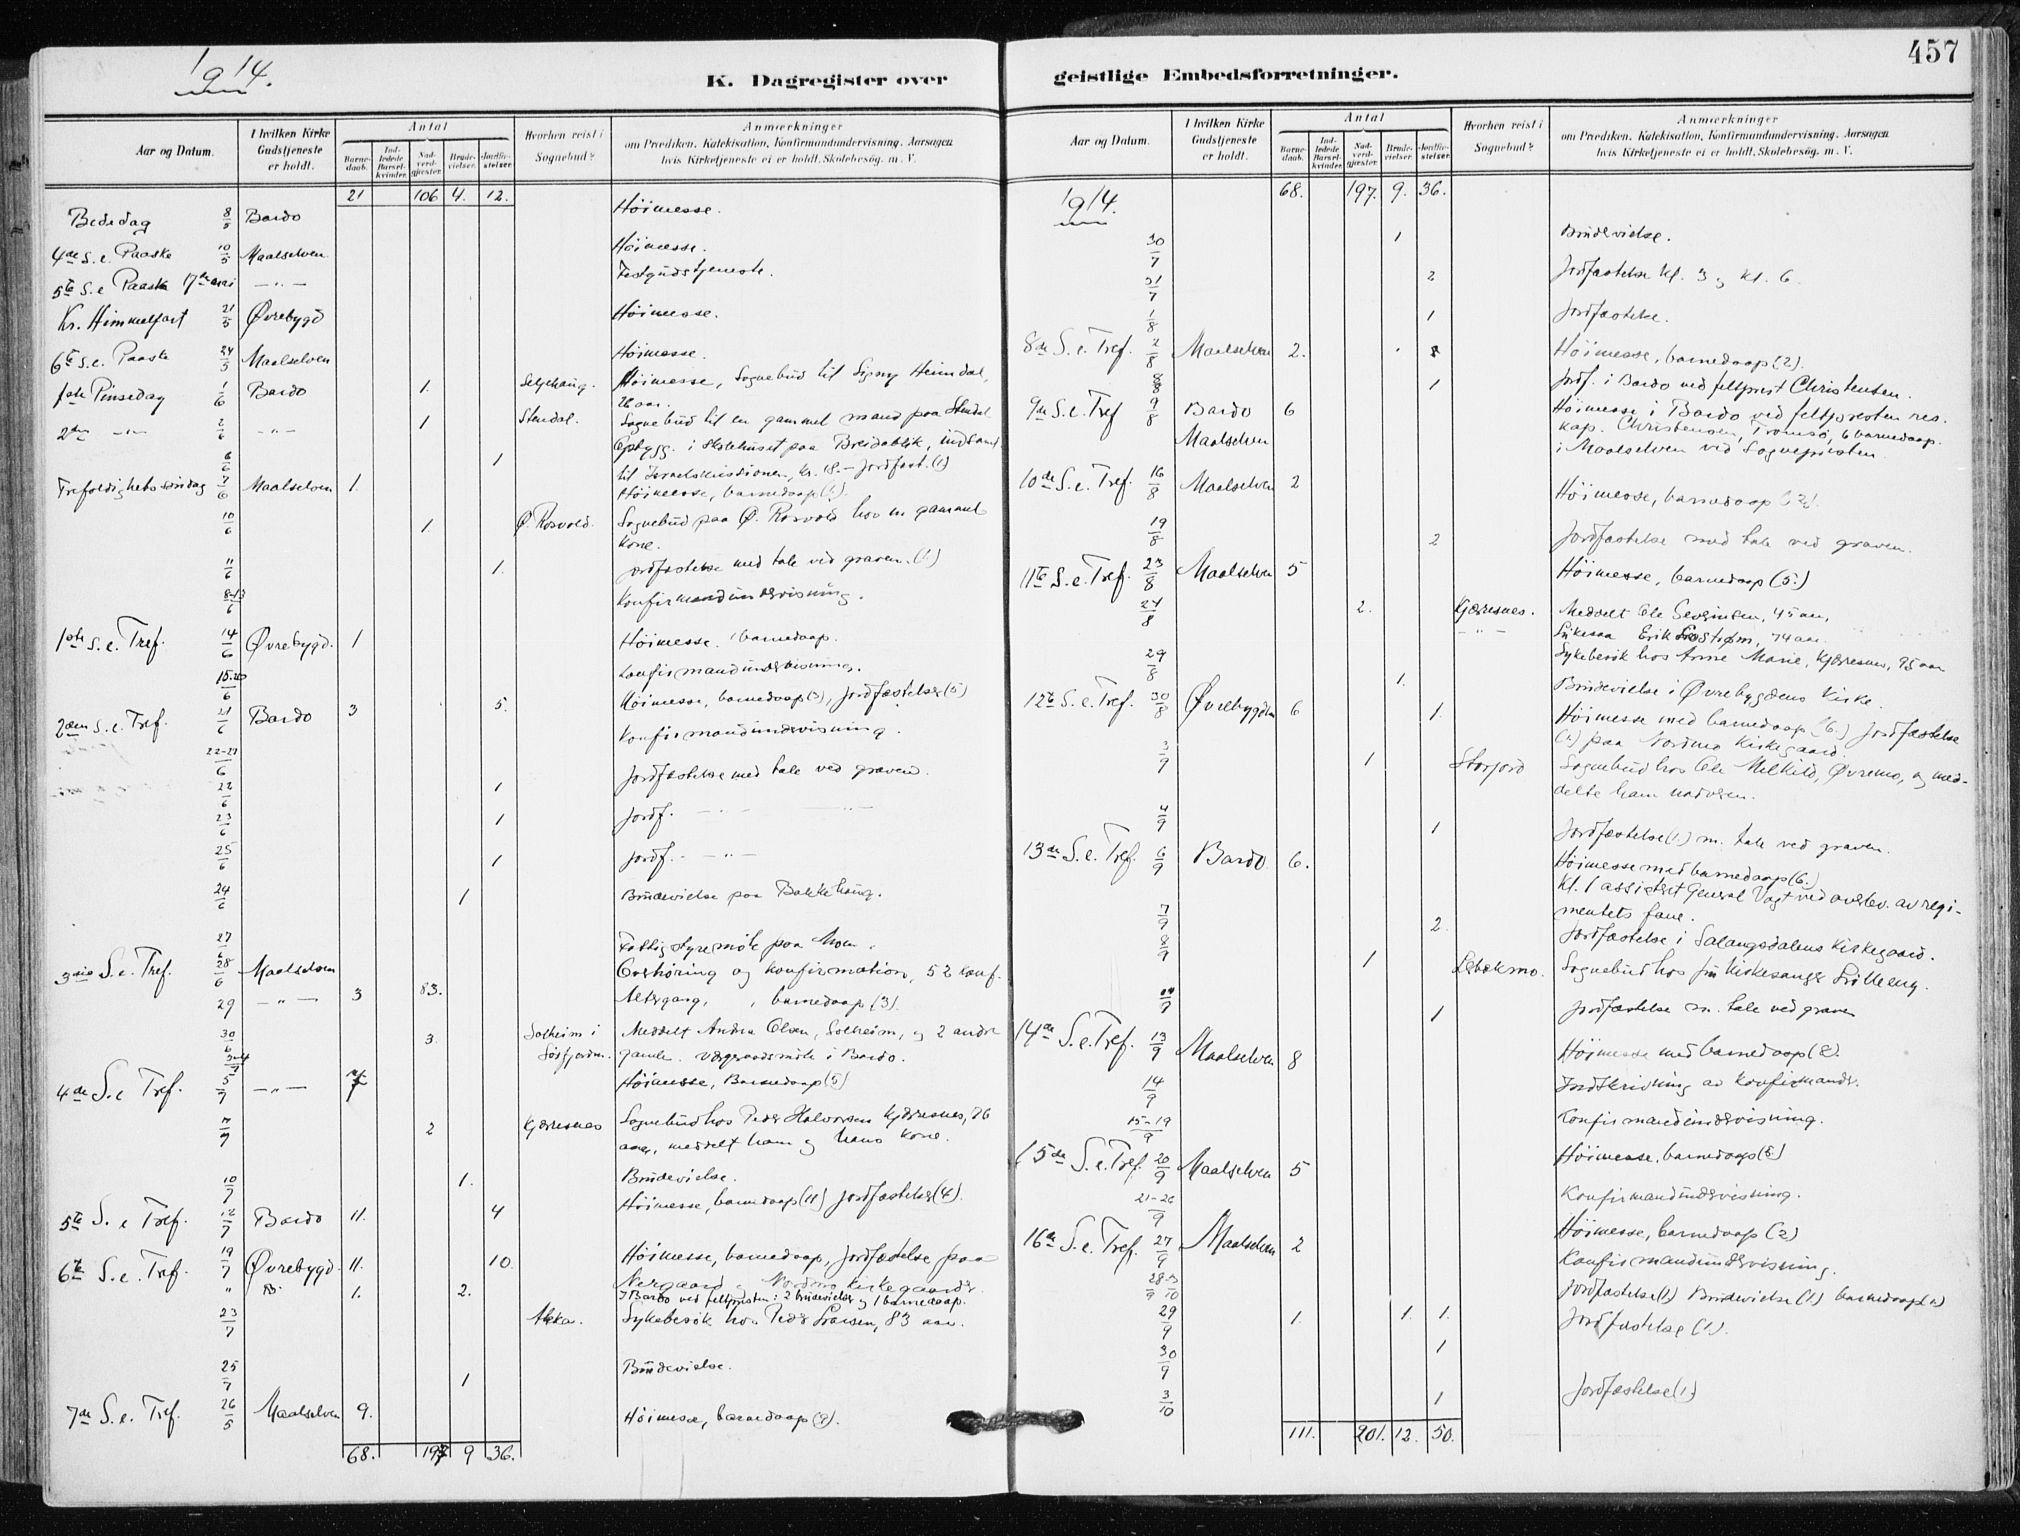 1914.
K. Dagregister over
Aar og Datum. I hvilken Kirke Gudstjeneste er holdt. Antal Barnedaab. Indledede Barselkvinder. Nadverdgjæster. Brudevielser. Jordfæstelser. Hvorhen reist i Sognebud? Anmærkninger om Prædiken, Katekisation, Konfirmandundervisning, Aarsagen hvis Kirketjeneste ei er holdt, Skolebesøg, m. V.
21 106 4. 12.
Bededag 8/5 Bardo Høimesse.
4de S. e. Paaske 10/5 Maalselven Høimesse.
5te S. e Paaske 17de mai — " — Festgudstjeneste.
Kr. Himmelfart 21/5 Øvrebygd Høimesse.
6te S. e. Paaske 24/5 Maalselven Høimesse.
1ste Pinsedag 1/6 Bardo 1. Høimesse, Sognebud til Signy Heimdal,
26 aar.
2den — " — 2/6 — " — 1 Stendal. Sognebud til en gammel mand paa Stendal
Opbygg. i Skolehuset paa Breidablik, indsaml
6/6 1 til Israelsmissionen, kr. 18. – Jordfæst. (1)
Trefoldighetssøndag 7/6 Maalselven 1. Høimesse, barnedaap (1).
10/6 1 Ø. Rosvold. Sognebud paa Ø. Rosvold hos en gammel
kone.
11/6 1. Jordfæstelse med tale ved graven. (1)
8-13/6 Konfirmandundervisning.
1ste S. e. Tref. 14/6 Øvrebygd. 1 Høimesse. 1 barnedaap.
15-20/6 Konfirmandundervisning.
2den S. e. Tref. 21/6 Bardo 3 5. Høimesse, barnedaap (3), Jordfæstelse (5)
22-27/6 Konfirmandundervisning.
22/6 1 Jordfæstelse med tale ved graven.
23/6 1 Jordf. — " — — " —
25/6 1 Jordf. — " —
24/6 1 Brudevielse paa Bakkehaug.
27/6 Fattigstyremøte paa Moen.
3die S. e. Tref. 28/6 Maalselven Overhøring og konfirmation, 52 konf.
29 — " — 3 83. Altergang, barnedaap (3).
30/6 3. Solheim i Meddelt Andrea Olsen, Solheim, og 2 andre
Sørfjorden. gamle. Vergeraadsmøte i Bardo.
4de S. e Tref. 5/7 — " — Høimesse, Barnedaap (5)
7/7 2 Kjærresnes Sognebud hos Peder Halvorsen Kjærresnes, 76
aar, meddelt ham og hans kone.
10/7 1. Brudevielse.
5te S. e Tref. 12/7 Bardo 11. 4 Høimesse, barnedaap (11) Jordfæstelse (4).
6te S. e. Tref. 19/7 Øvrebygd. 11. 10. Høimesse, barnedaap, Jordfæstelse paa
Nergaard og Nordmo kirkegaarde.
" B. 1. 2. I Bardo ved feltpresten: 2 brudevielser og 1 barnedaap.
23/7 Akka. Sykebesøk hos Peder Larsen, 83 aar.
25/7 1 Brudevielse.
7de S. e. Tref. 26/5 Maalselven 9. Høimesse, barnedaap (9).
68. 197 9 36.
457
geistlige Embedsforretninger.
Aar og Datum. I hvilken Kirke Gudstjeneste er holdt. Antal Barnedaab. Indledede Barselkvinder. Nadverdgjæster. Brudevielser. Jordfæstelser. Hvorhen reist i Sognebud? Anmærkninger om Prædiken, Katekisation, Konfirmandundervisning, Aarsagen hvis Kirketjeneste ei er holdt, Skolebesøg, m. V.
1914. 68. 197. 9. 36.
30/7 1 Brudevielse.
31/7 2 Jordfæstelse kl. 3 og kl. 6.
1/8 1 Jordfæstelse.
8de S. e. Tref. 2/8 Maalselven 2. Høimesse, barnedaap (2).
8/8 1 Jordf. i Bardo ved feltprest Christensen.
9de S. e. Tref 9/8 Bardo 6 Høimesse i Bardo ved feltpresten res.
kap. Christensen, Tromsø, 6 barnedaap.
Maalselven i Maalselven ved Sognepresten.
10de S. e. Tref. 16/8 Maalselven 2 Høimesse, barnedaap (2).
19/8 2 Jordfæstelse med tale ved graven.
11te S. e. Tref. 23/8 Maalselven 5 Høimesse, barnedaap (5.)
24/8 2. Kjærresnes. Meddelt Ole Severinsen, 45 aar,
— " — Erik 74 aar.
29/8 Sykebesøk hos Anne Marie, Kjærresnes, 95 aar
1. Brudevielse i Øvrebygdens Kirke.
12te S. e. Tref. 30/8 Øvrebygden 6 1. Høimesse med barnedaap (6.) Jordfæstelse
(1) paa Nordmo Kirkegaard.
3/9 1 Storjord Sognebud hos Ole Øvremo, og med-
delte ham nadveren.
4/9 1 Jordfæstelse (1.) m. tale ved graven.
13de S. e. Tref. 6/9 Bardo 6. Høimesse med barnedaap (6.)
Kl. 1 assisteret General Vogt ved overlev. av regi-
mentets fane.
7/9 2. Jordfæstelse i Salangsdalens Kirkegaard.
8/9 1 Sognebud hos fru Kirkesanger
1 Jordfæstelse m. tale ved graven
14de S. e. Tref. 13/9 Maalselven 8 Høimesse med barnedaap (8).
14/9 Indskrivning av konfirmander.
15-19/9 Konfirmandundervisning.
15de S. e. Tref. 20/9 Maalselven 5 Høimesse, barnedaap (5)
21-26/9 Konfirmandundervisning.
16de S. e. Tref. 27/9 Maalselven 2 Høimesse, barnedaap (2)
28/9 3/10 Konfirmandundervisning.
29/9 1. 1. 1. Jordfæstelse (1) Brudevielse (1) barnedaap (1)
30/9 1 Jordfæstelse (1).
3/10 1 Jordfæstelse (1)
111. 201. 12. 50.